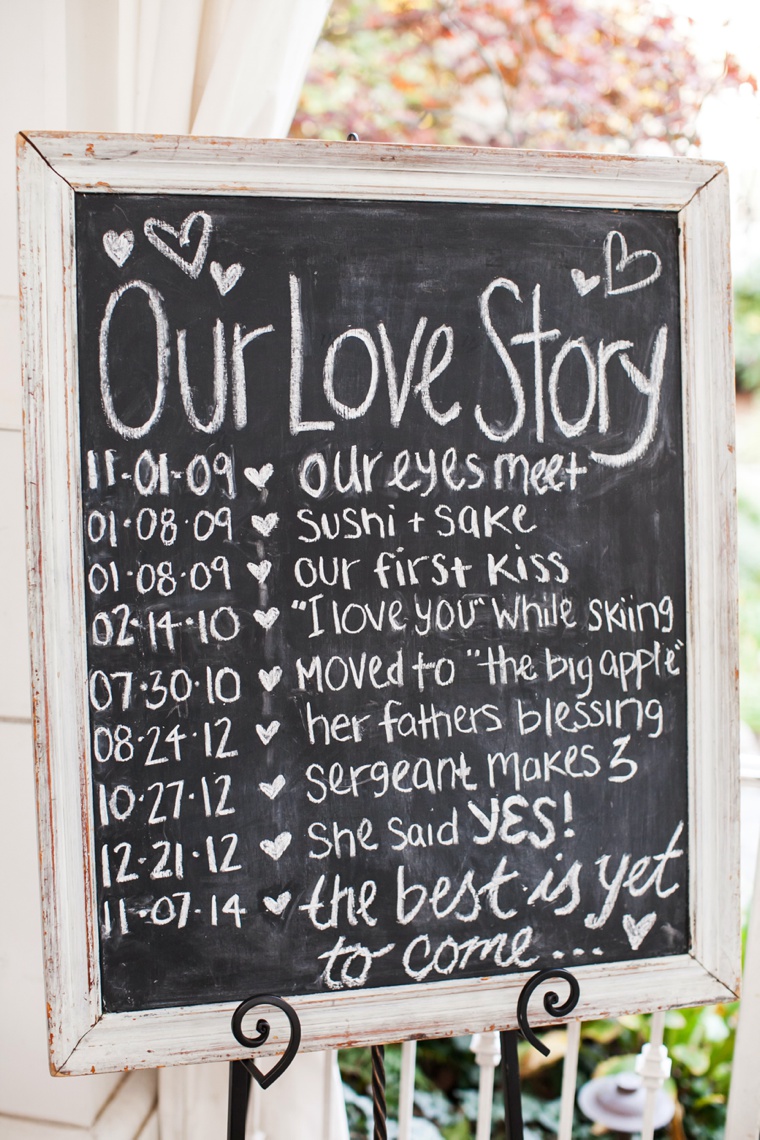 Our Love Story
11-01-09 our eyes meet
01.08.09 sushi + sake
01.08.09 our first kiss
02.14.10 "I love you" while skiing
07.30.10 moved to "the big apple"
08.24.12 her fathers blessing
10.27.12 sergeant makes 3
12.21.12 she said YES!
11-07-14 the best is yet
to come...